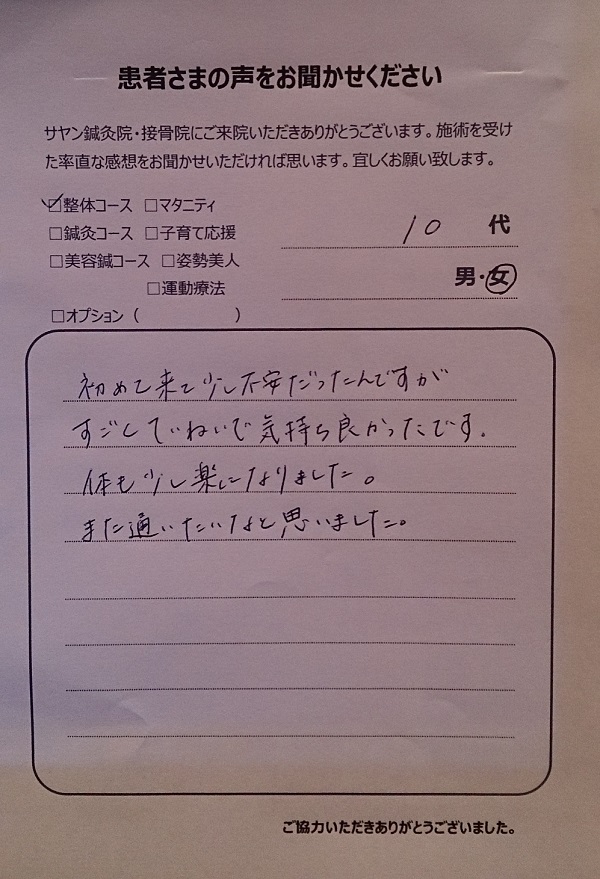 患者さまの声をお聞かせください
サヤン鍼灸院・接骨院にご来院いただきありがとうございます。施術を受け
た率直な感想をお聞かせいただければ思います。宜しくお願い致します。
☑整体コース □マタニティ
□鍼灸コース □子育て応援
□美容鍼コース □姿勢美人
□運動療法
□オプション（ ）
10 代
男・女
初めて来て少し不安だったんですが
すごくていねいで気持ち良かったです。
体も少し楽になりました。
また通いたいなと思いました。
ご協力いただきありがとうございました。